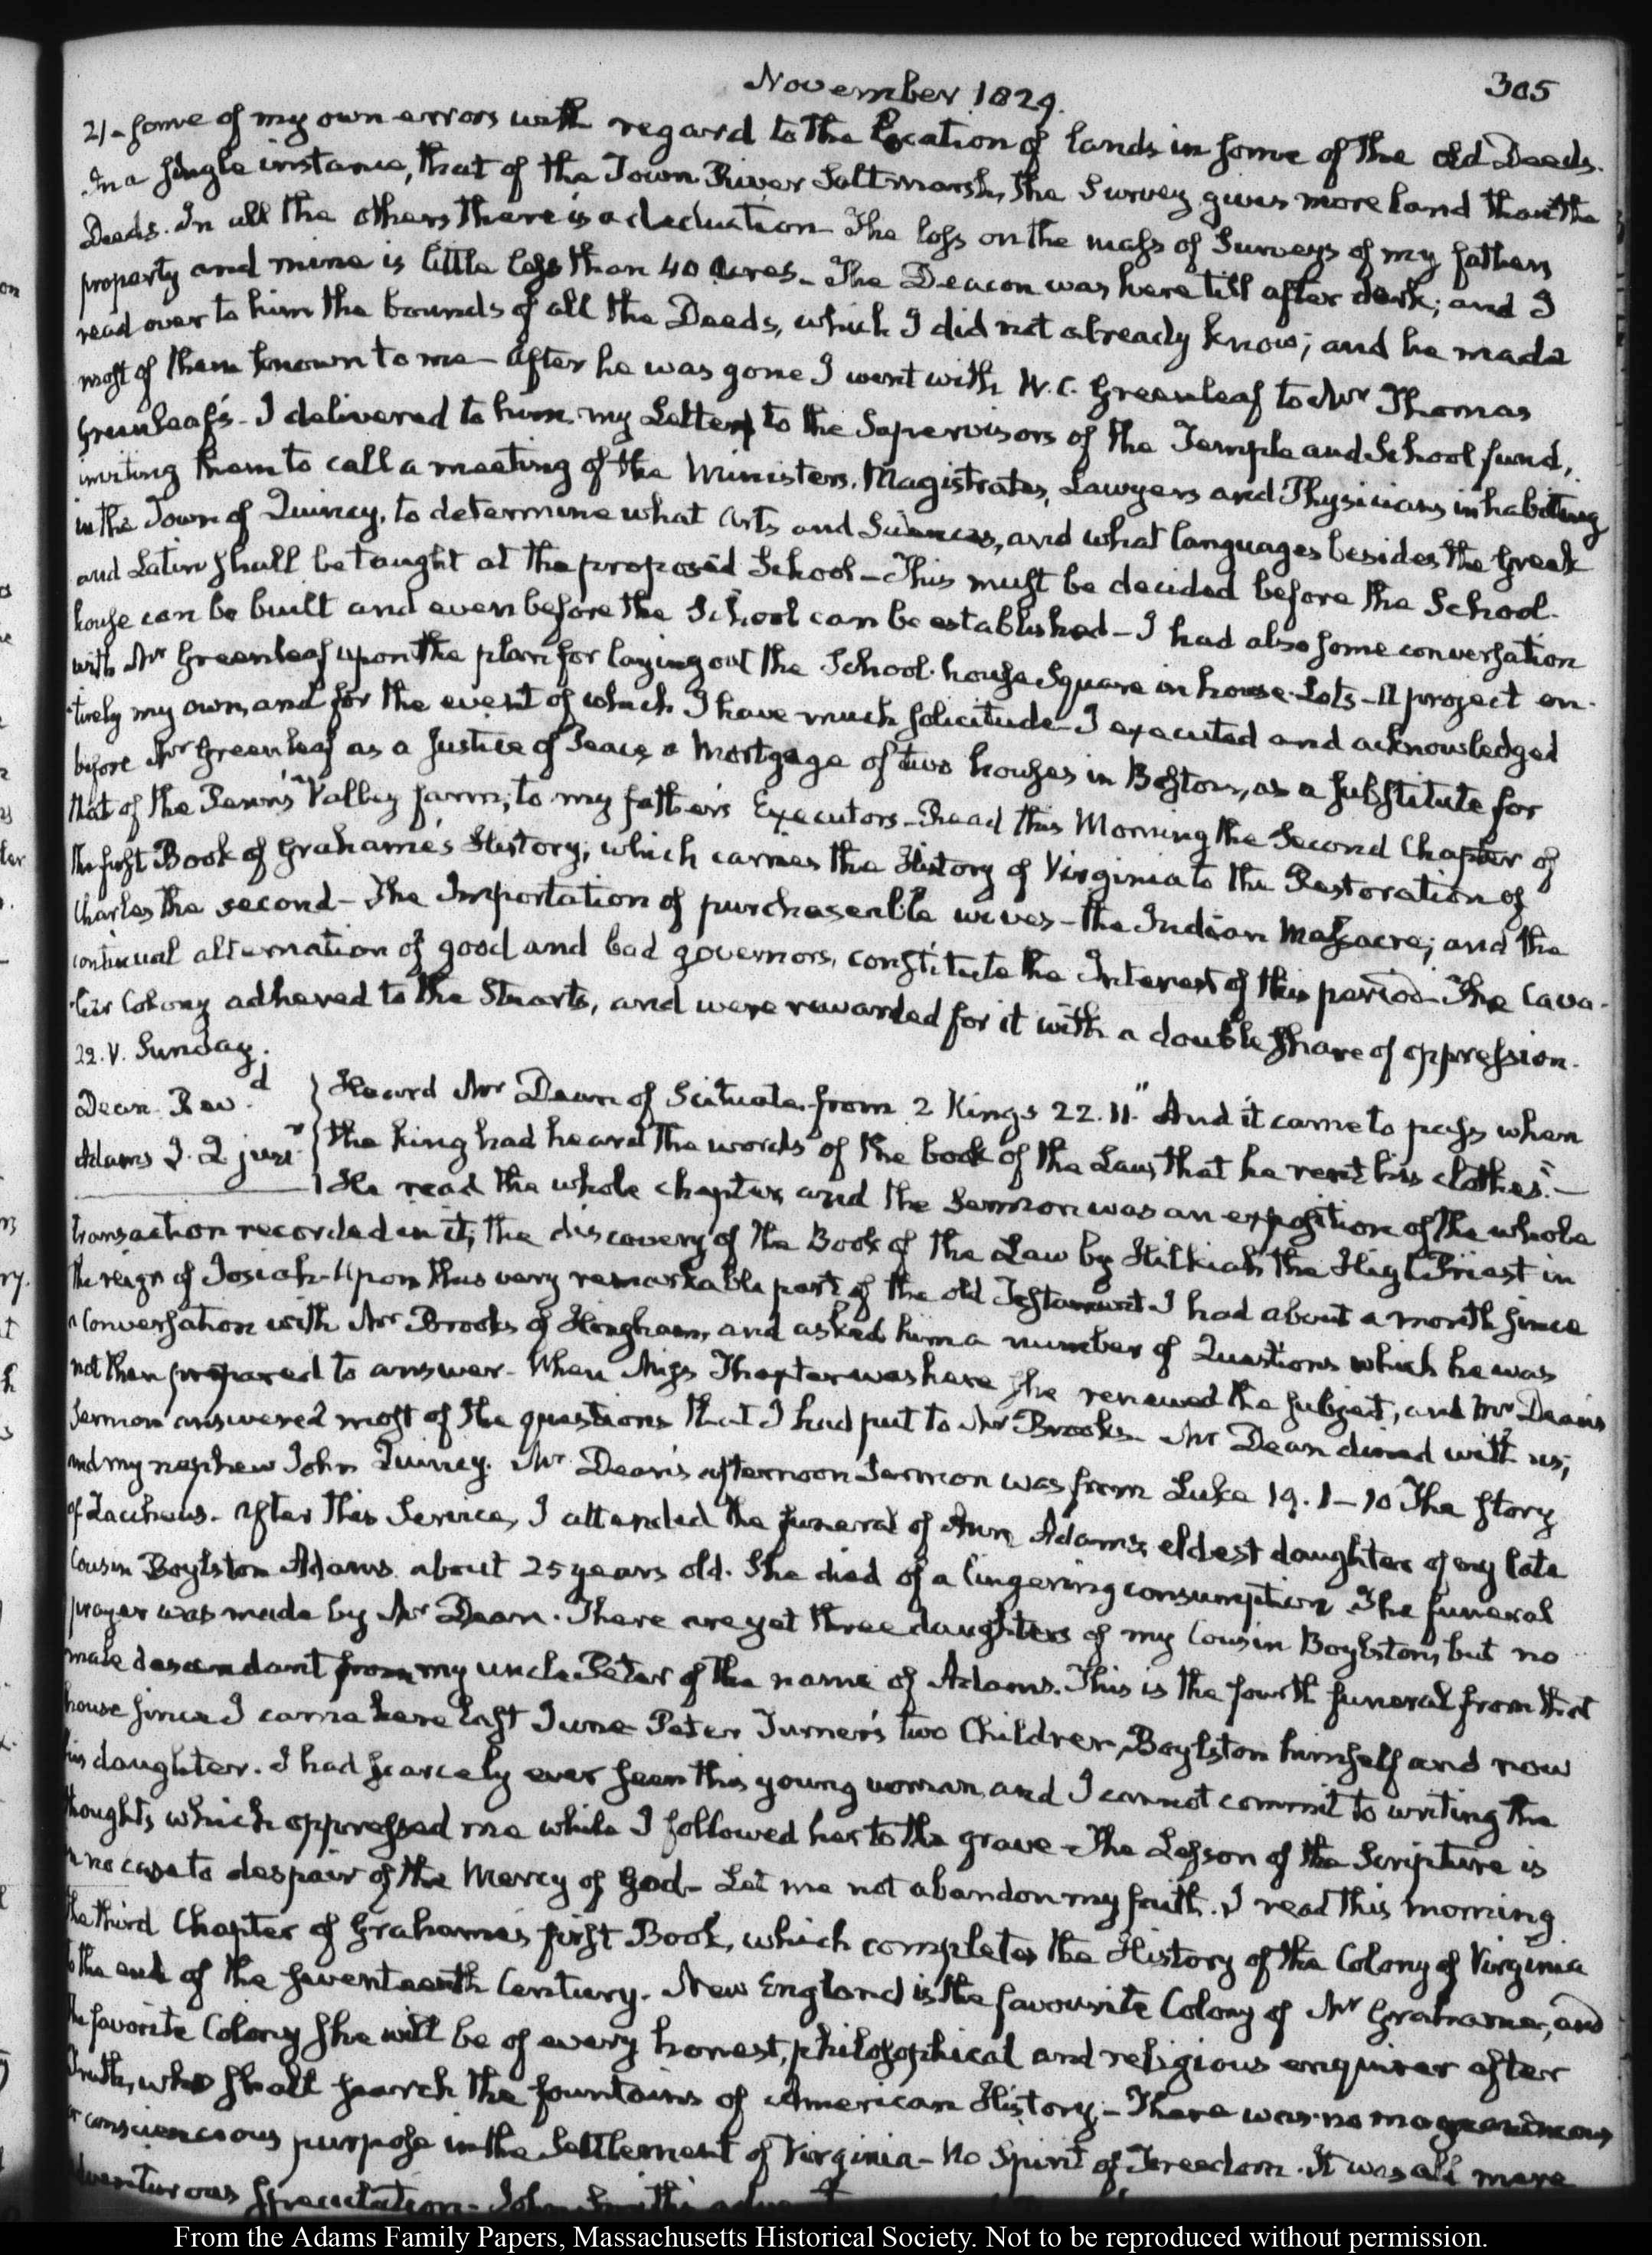 November 1829.
305
21- some of my own errors with regard to the Location of lands in some of the old Deeds.
In a single instance, that of the Town River Salt marsh, the Survey gives more land than the
Deeds. In all the others there is a deduction- The loss on the mass of Surveys of my fathers
property and mine is little less than 40 Acres- The Deacon was here till after dark; and I
read over to him the bounds of all the Deeds, which I did not already know; and he made
most of them known to me- After he was gone I went with W. C. Greenleaf to Mr Thomas
Greenleaf's- I delivered to him my Letter to the Supervisors of the Temple and School fund,
inviting them to call a meeting of the Ministers, Magistrates, Lawyers and Physicians inhabiting
in the Town of Quincy, to determine what Arts and Sciences, and what languages besides the Greek
and Latin shall be taught at the proposed School- This must be decided before the School-
house can be built and even before the School can be established- I had also some conversation
with Mr Greenleaf upon the plan for laying out the School-house Square in house-Lots- A project en-
-tirely my own, and for the event of which I have much solicitude- I executed and acknowledged
before Mr Greenleaf as a Justice of Peace a Mortgage of two houses in Boston, as a substitute for
that of the Penn's Valley farm, to my father's Executors- Read this Morning the Second Chapter of
the first Book of Grahame's History, which carries the History of Virginia to the Restoration of
Charles the second- The Importation of purchaseable wives- the Indian Massacre; and the
continual alternation of good and bad governors, constitute the Interest of this period- The Cava-
-lier Colony adhered to the Stuarts, and were rewarded for it with a double share of oppression.
22. V. Sunday.
Dean Revd
Adams J. Q junr
Heard Mr Dean of Scituate from 2 Kings 22. 11. "And it came to pass when
the king had heard the words of the book of the Law, that he rent his clothes."-
He read the whole chapter, and the Sermon was an exposition of the whole
transaction recorded in it, the discovery of the Book of the Law by Hilkiah the High Priest in
the reign of Josiah- Upon this very remarkable part of the old Testament I had about a month since
a Conversation with Mr Brooks of Hingham, and asked him a number of Questions which he was
not then prepared to answer- When Miss Thaxter was here she renewed the subject, and Mr Dean's
Sermon answered most of the questions that I had put to Mr Brooks- Mr Dean dined with us;
and my nephew John Quincy. Mr Dean's afternoon Sermon was from Luke 19. 1-10 The story
of Zaccheus- After this Service, I attended the funeral of Ann Adams, eldest daughter of my late
Cousin Boylston Adams about 25 years old. She died of a lingering consumption. The funeral
prayer was made by Mr Dean. There are yet three daughters of my Cousin Boylston, but no
male descendant from my uncle Peter of the name of Adams. This is the fourth funeral from that
house since I came here last June- Peter Turner's two Children, Boylston himself and now
his daughter. I had scarcely ever seen this young woman, and I cannot commit to writing the
thoughts which oppressed me while I followed her to the grave- The Lesson of the Scripture is
in no case to despair of the Mercy of God- Let me not abandon my faith. I read this morning
the third Chapter of Grahame's first Book, which completes the History of the Colony of Virginia
to the end of the seventeenth Century. New England is the favourite Colony of Mr Grahame, and
the favorite Colony she will be of every honest, philosophical and religious enquirer after
Truth, who shall search the fountains of American History- There was no magnanimous
or conscientious purpose in the Settlement of Virginia- No Spirit of Freedom. It was all mere
adventurous speculation- John Smith's
From the Adams Family Papers, Massachusetts Historical Society. Not to be reproduced without permission.